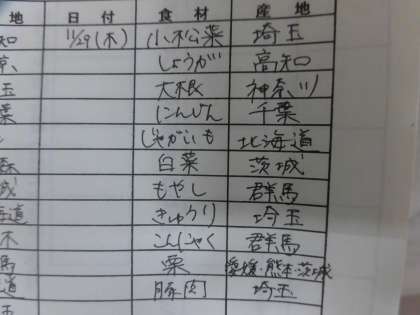 地 日付 食材 産地
知 11/29(木) 小松菜 埼玉
京 しょうが 高知
玉 大根 神奈川
葉 にんじん 千葉
じゃがいも 北海道
白菜 茨城
城 もやし 群馬
海道 きゅうり 埼玉
木 こんにゃく 群馬
馬 栗 愛媛・熊本・茨城
道 豚肉 埼玉
玉